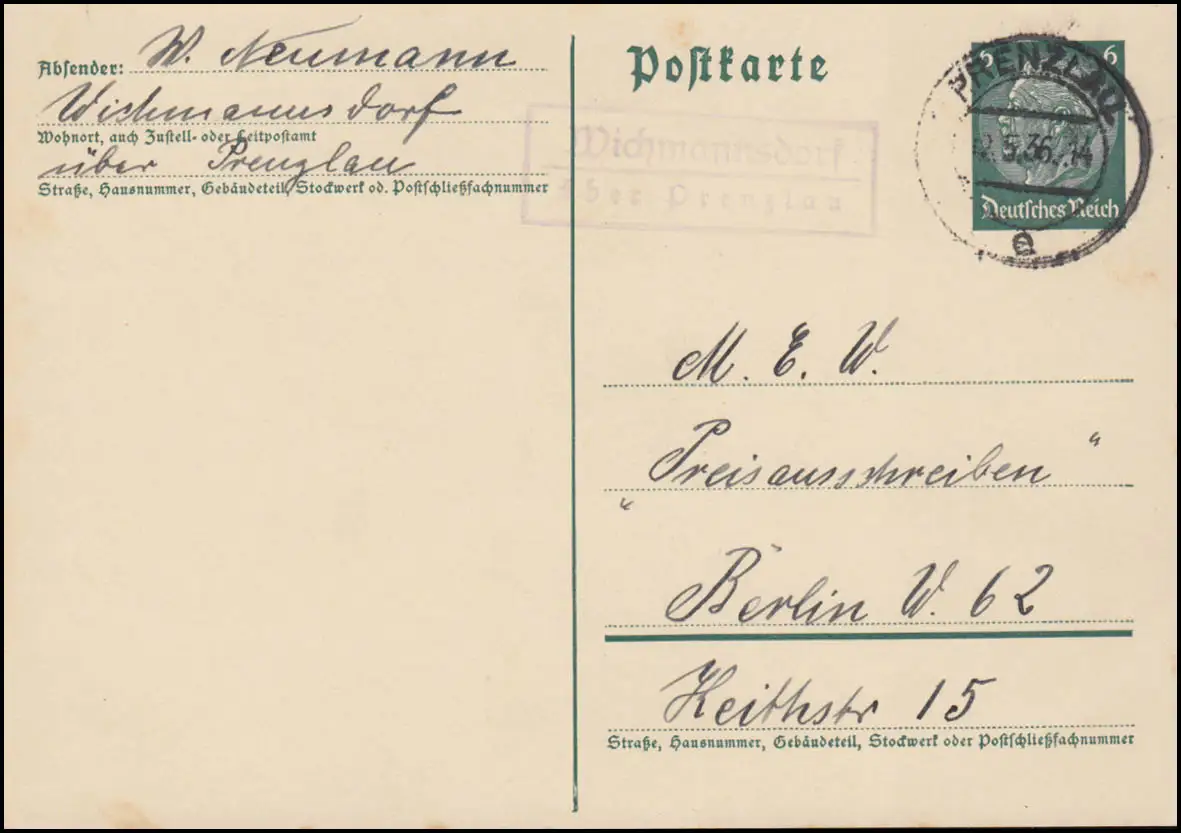 Absender: W. Neumann
Wichmannsdorf
Wohnort, auch Zustell- oder Leitpostamt
über Prenzlau
Straße, Hausnummer, Gebäudeteil, Stockwerk od. Postschließfachnummer
Postkarte
Wichmannsdorf
über Prenzlau
6 6
PRENZLAU
2.5.36.14
e
Deutsches Reich
M. E. W.
„Preisausschreiben“
Berlin W. 62
Keithstr 15
Straße, Hausnummer, Gebäudeteil, Stockwerk oder Postschließfachnummer